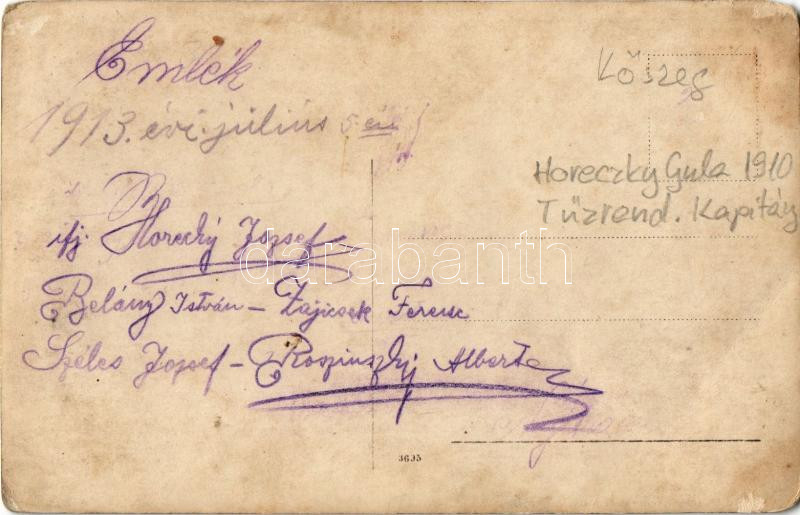 Emlék
1913. évi július 5 én
ifj Horecky József
Belány István - Zajicsek Ferenc
Széles József - Roszinszky Albert
Kőszeg
Horeczky Gula 1910
Tűzrend. Kapitány
darabanth
3695